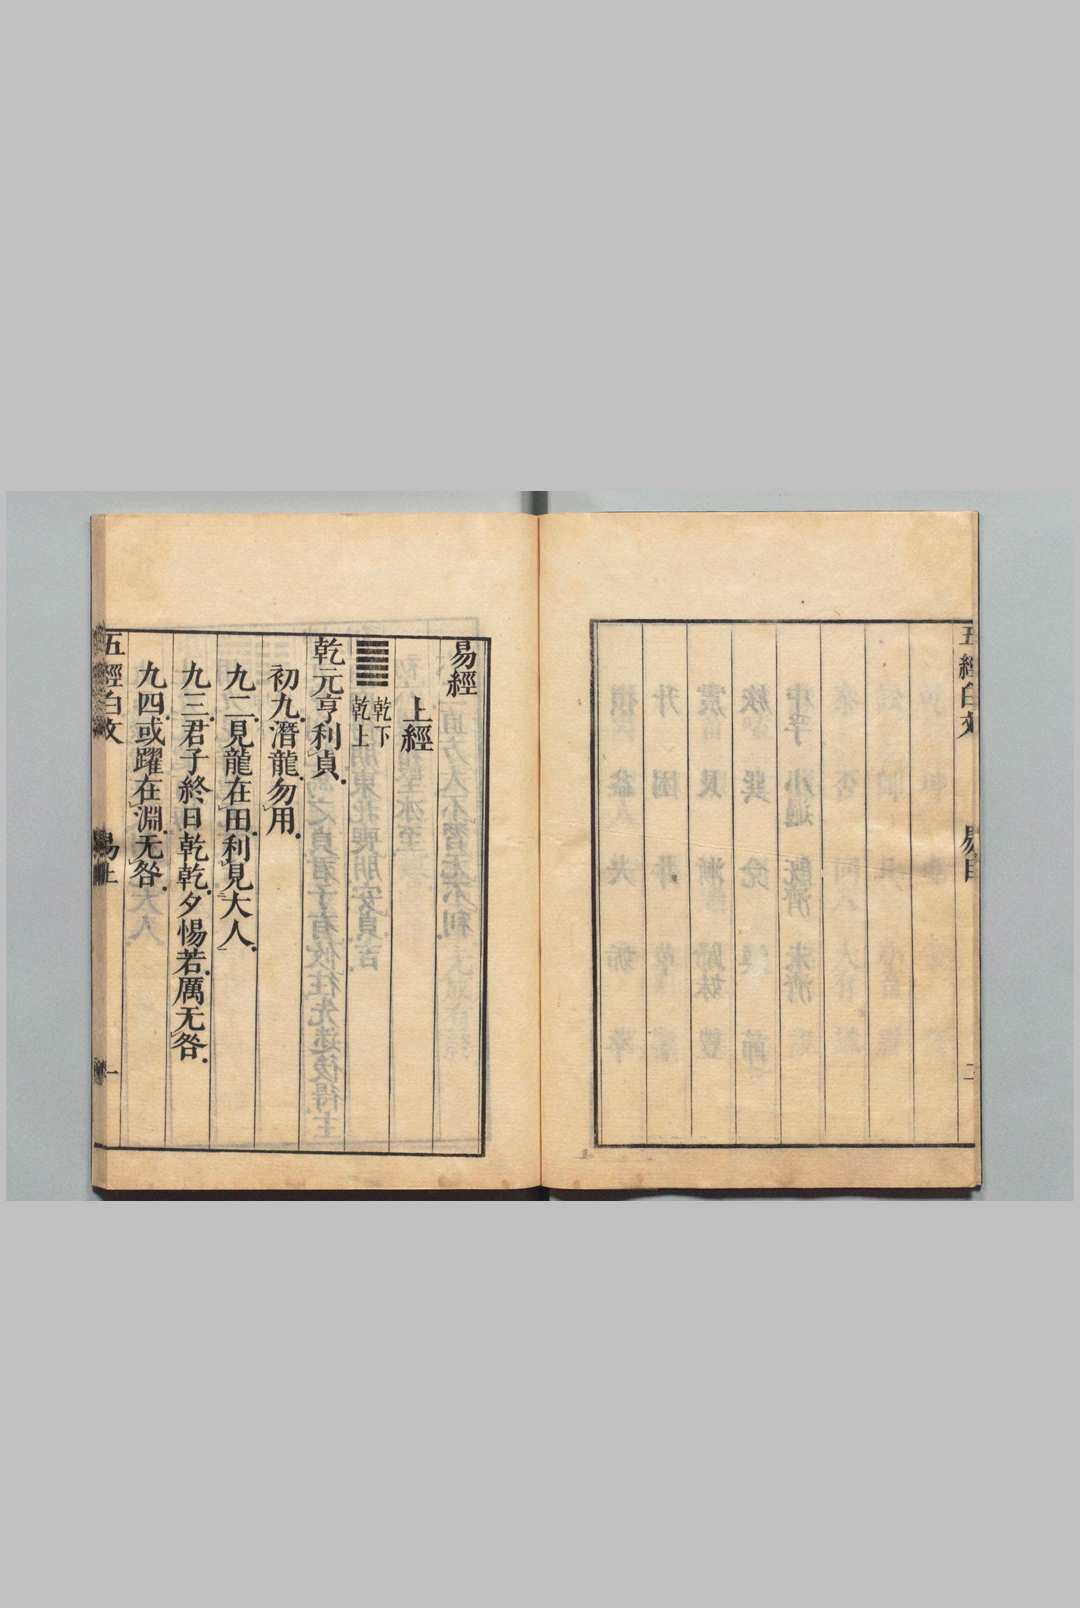 五經白文
易目
二
易經
上經
乾下
乾上
乾元亨利貞
初九潛龍勿用
九二見龍在田利見大人
九三君子終日乾乾夕惕若厲无咎
九四或躍在淵无咎
五經白文
易上
一